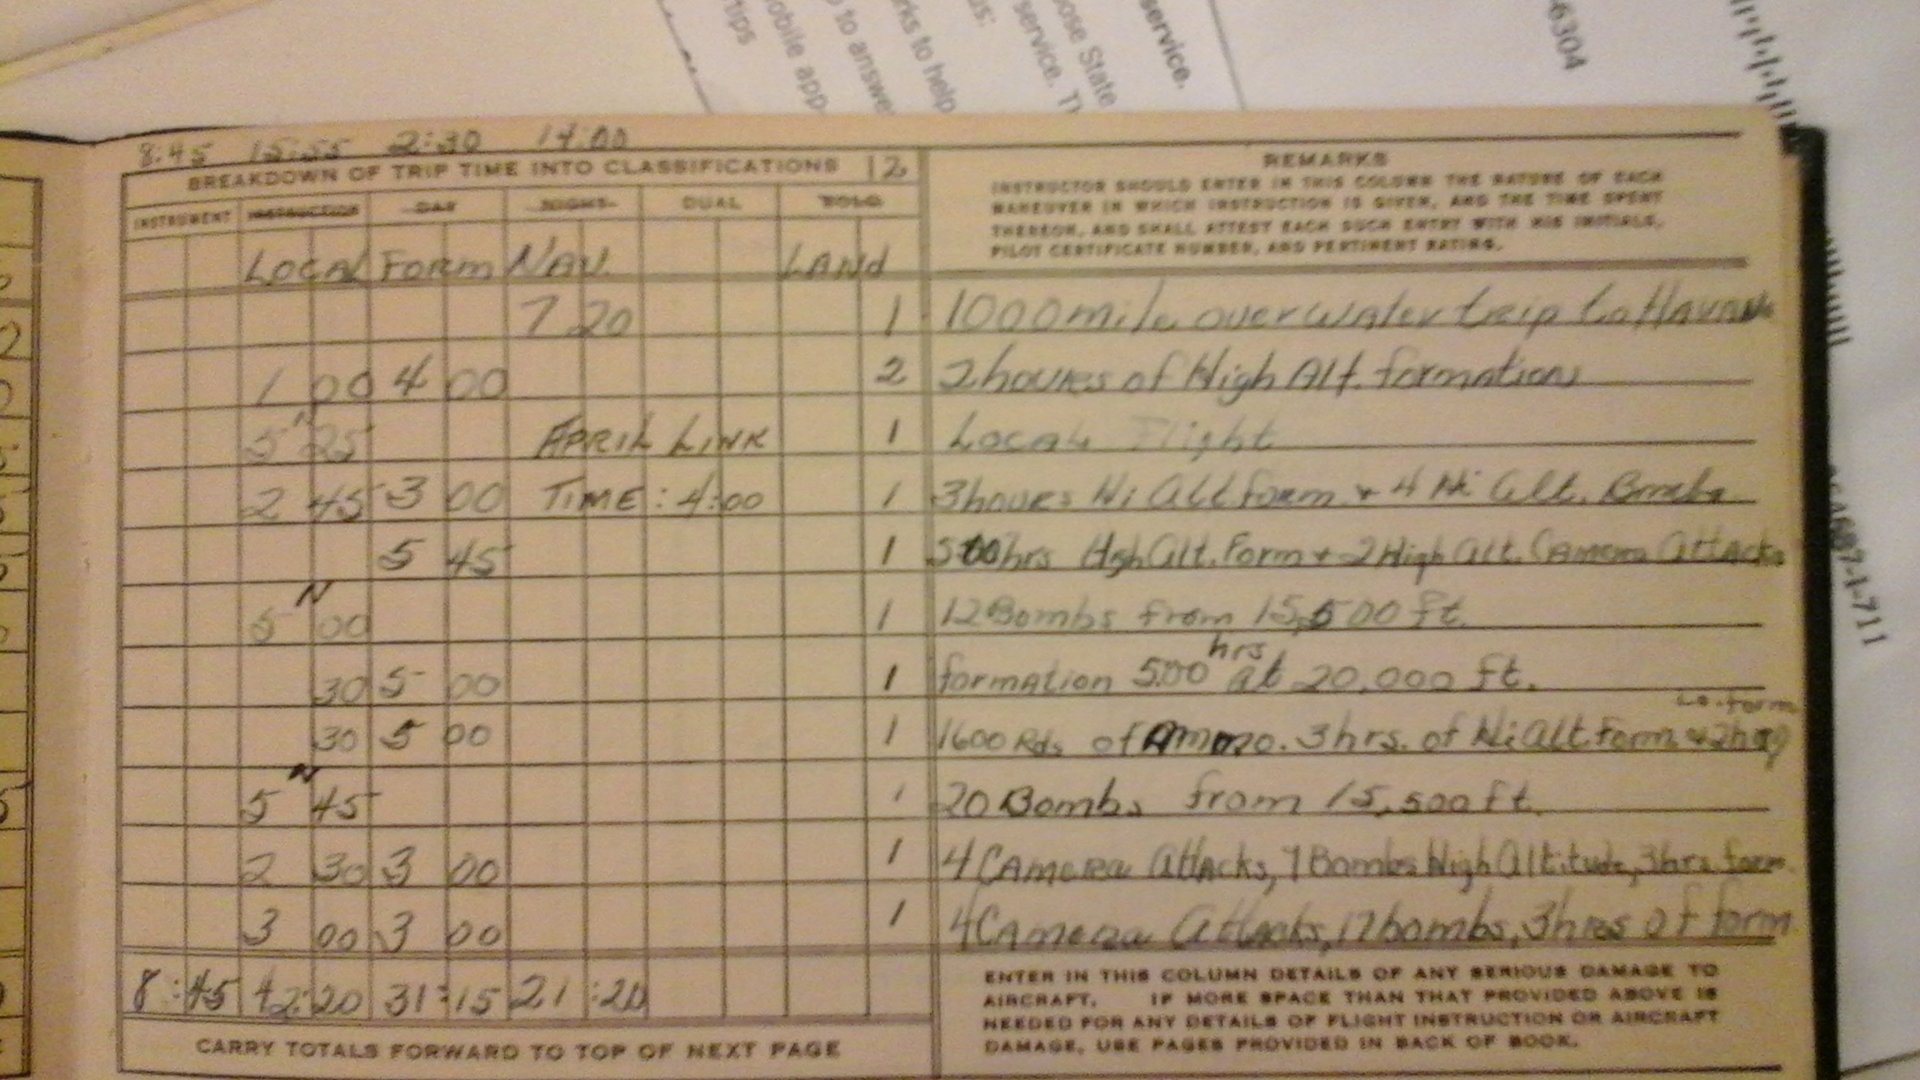 service.
-6304
ose State
service. Th
us:
rks to help
to answe
mobile app
tips
8:45 15:55 2:30 14:00
BREAKDOWN OF TRIP TIME INTO CLASSIFICATIONS 12
REMARKS
INSTRUMENT INSTRUCTION DAY NIGHT DUAL SOLO
INSTRUCTOR SHOULD ENTER IN THIS COLUMN THE NATURE OF EACH
MANEUVER IN WHICH INSTRUCTION IS GIVEN, AND THE TIME SPENT
THEREON, AND SHALL ATTEST EACH SUCH ENTRY WITH HIS INITIALS,
PILOT CERTIFICATE NUMBER, AND PERTINENT RATING.
LOCAL FORM NAV. LANd
7 20 1 1000 mile over water trip to Havana
1 00 4 00 2 2 hours of High Alt. formation
5 25 APRIL LINK 1 Local Flight
2 45 3 00 TIME: 4:00 1 3 hours Hi Alt form & 4 Hi Alt. Bombs
5 45 1 500 hrs High Alt. Form & 2 High Alt. Camera Attacks
N
5 00 1 12 Bombs from 15,500 ft.
hrs
30 5 00 1 formation 5:00 at 20,000 ft.
30 5 00 1 1600 Rds of Ammo. 3 hrs. of Hi Alt Form & 2 hrs
N
5 45 1 20 Bombs from 15,500 ft.
2 30 3 00 1 4 Camera Attacks, 7 Bombs High Altitude, 3 hrs. form.
3 00 3 00 1 4 Camera Attacks, 17 bombs, 3 hrs of form
8:45 42:20 31:15 21:20
ENTER IN THIS COLUMN DETAILS OF ANY SERIOUS DAMAGE TO
AIRCRAFT. IF MORE SPACE THAN THAT PROVIDED ABOVE IS
NEEDED FOR ANY DETAILS OF FLIGHT INSTRUCTION OR AIRCRAFT
DAMAGE, USE PAGES PROVIDED IN BACK OF BOOK.
CARRY TOTALS FORWARD TO TOP OF NEXT PAGE